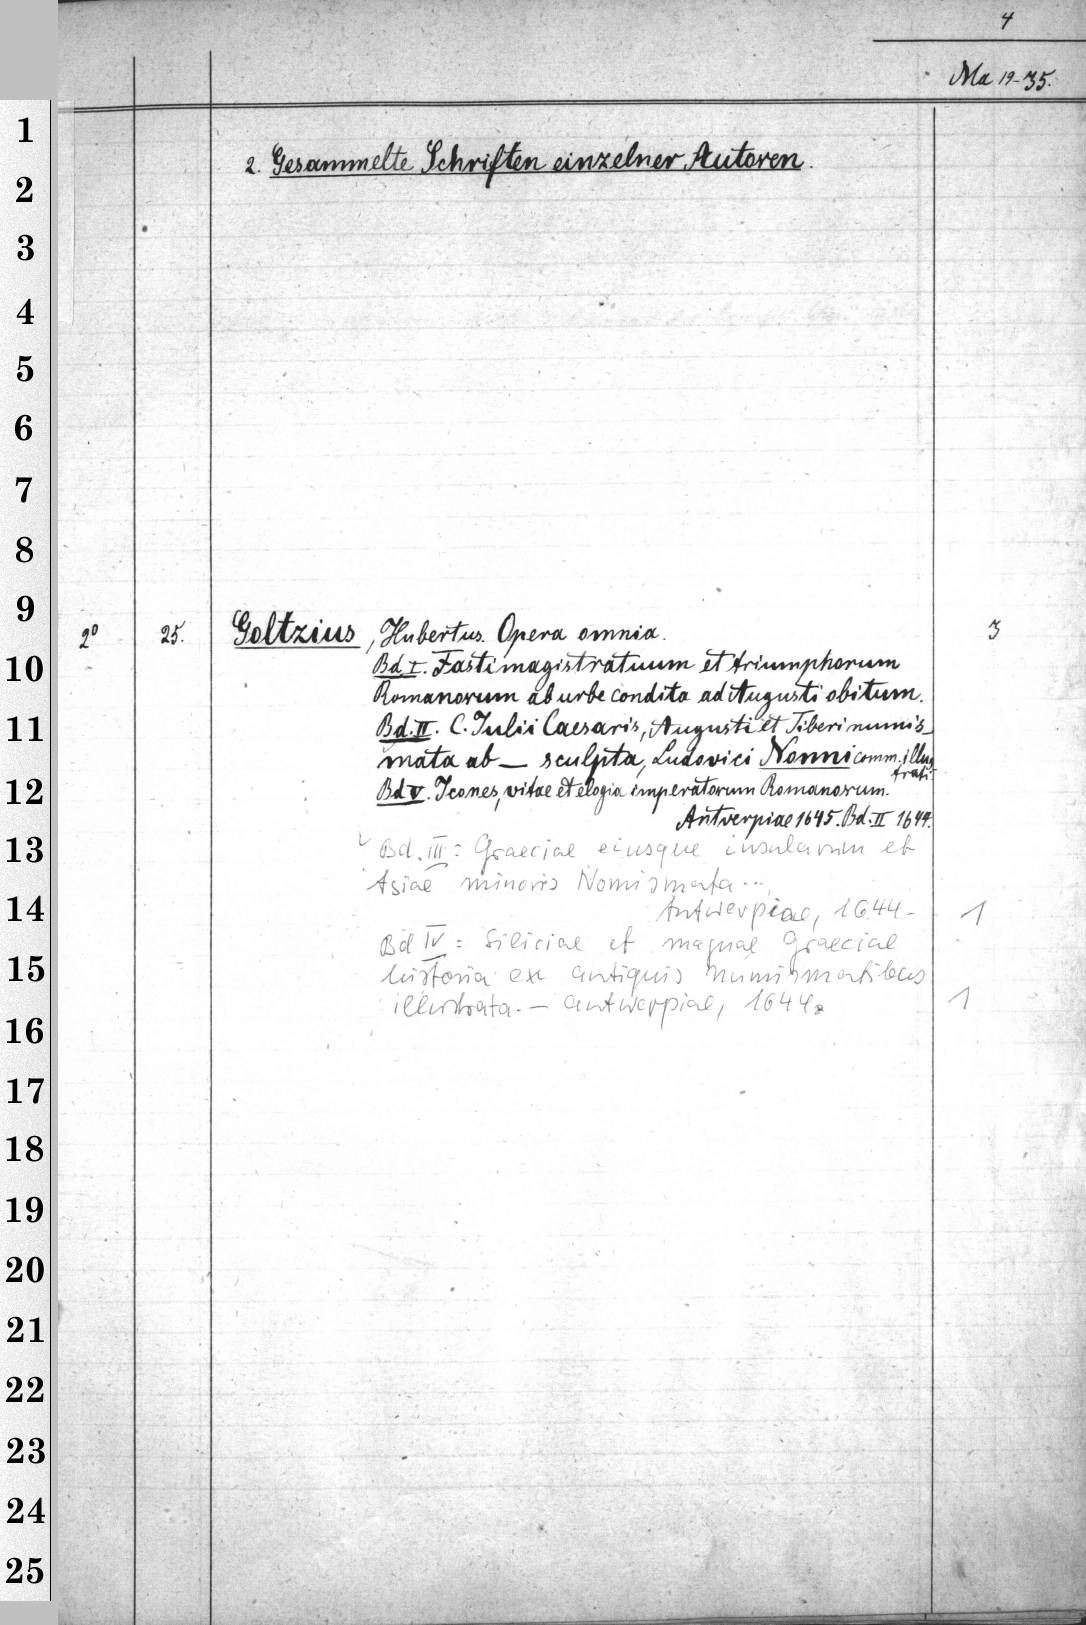 4
Ma 19-35.
1
2. Gesammelte Schriften einzelner Autoren.
2
3
4
5
6
7
8
9
2° 25. Goltzius, Hubertus. Opera omnia. 3
10 Bd. I. Fasti magistratuum et triumphorum
Romanorum ab urbe condita ad Augusti obitum.
11 Bd. II. C. Iulii Caesaris, Augusti et Tiberi numis-
mata ab — sculpta, Ludovici Nonni comm. illus
trati-
12 Bd V. Icones, vitae et elogia imperatorum Romanorum.
Antverpiae 1645. Bd. II 1644.
13 Bd. III: Graeciae eiusque insularum et
Asiae minoris Nomismata ...,
14 Antwerpiae, 1644- 1
Bd IV: Siliciae et magnae Graeciae
15 historia ex antiquis numismatibus
illustrata. — Antwerpiae, 1644. 1
16
17
18
19
20
21
22
23
24
25